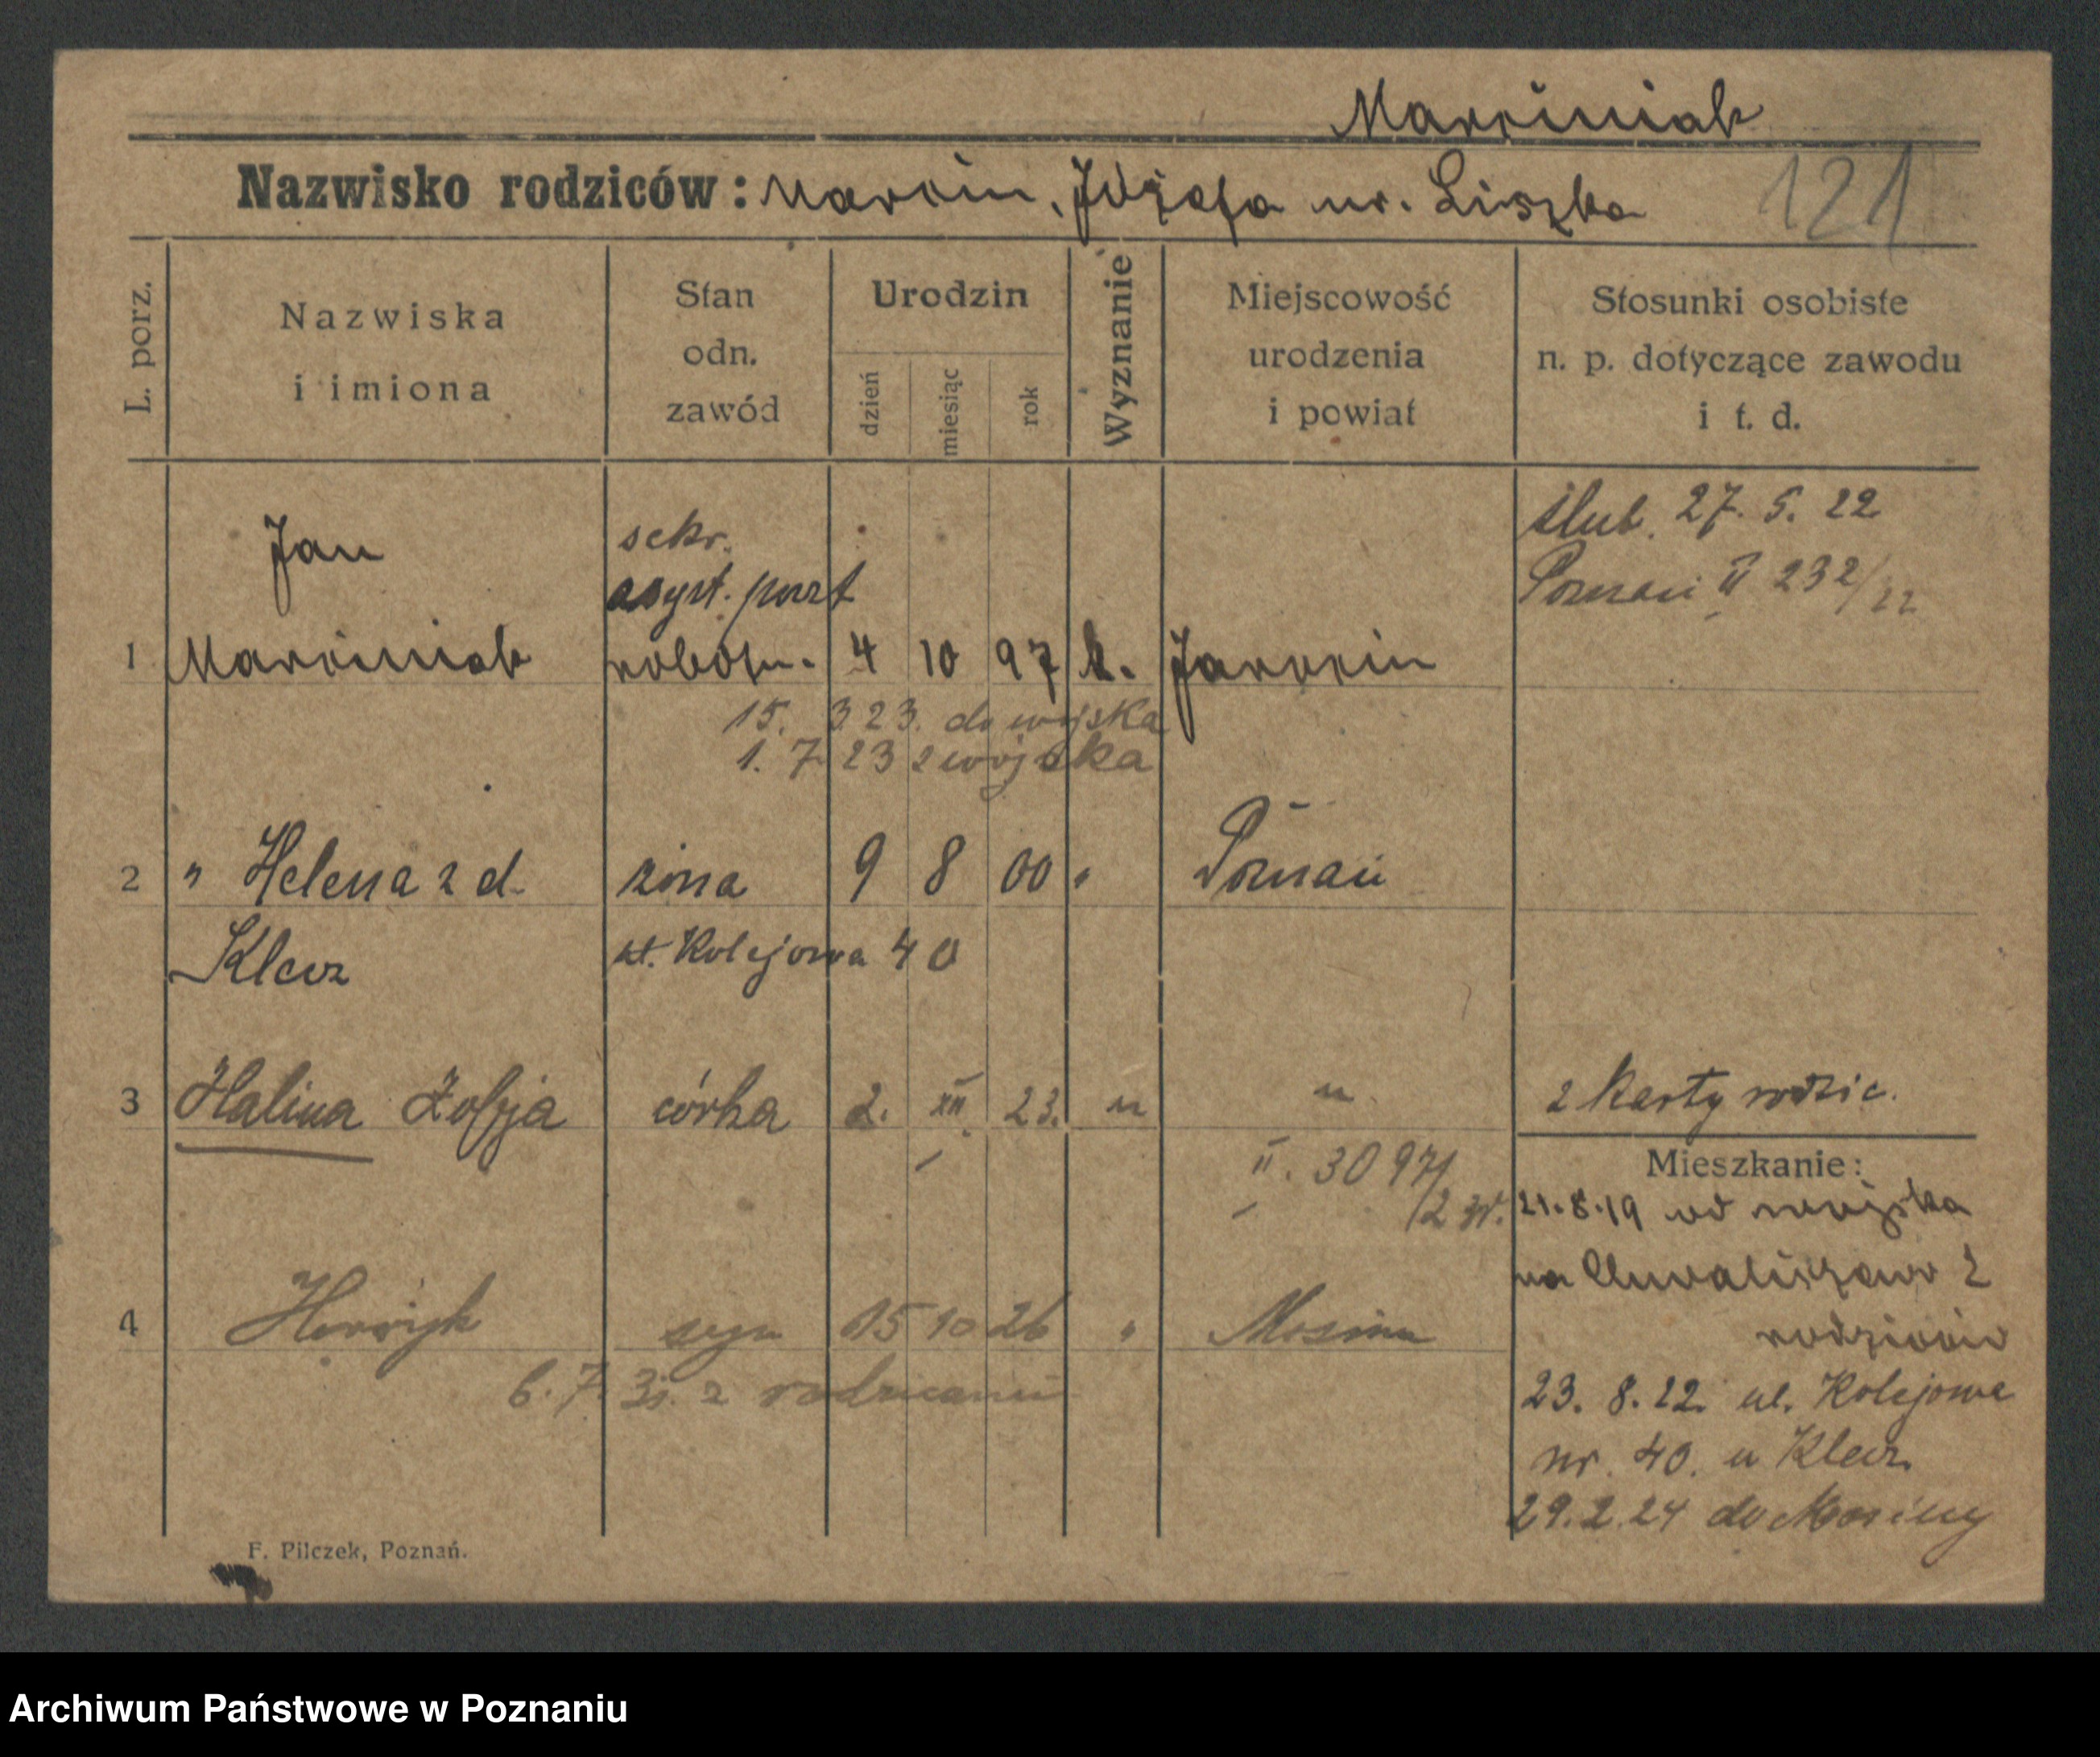 Marciniak
Nazwisko rodziców: Marcin, Józefa ur. Liszka
121
L. porz.
Nazwiska
i imiona
Stan
odn.
zawód
Urodzin
dzień
miesiąc
rok
Wyznanie
Miejscowość
urodzenia
i powiat
Stosunki osobiste
n. p. dotyczące zawodu
i t. d.
ślub. 27. 5. 22
Poznań II 232/22
Jan
sekr.
asyst. poczt
1 Marciniak robotn. 4 10 97 k. Jarocin
15. 3 23. do wojska
1. 7 23 z wojska
2 " Helena z d. żona 9 8 00 " Poznań
Klecz
ul. Kolejowa 40
3 Halina Zofja córka 2. XII 23. " " 2 Karty rodzic.
II. 3097/23r.
Mieszkanie:
21.8.19 od wojska
na Chwaliszewo 2
rodziców
4 Henryk syn 15 10 26 " Mosina
6. 7. 31. z rodzicami
23. 8. 22. ul. Kolejowa
nr. 40. u Klecz.
29.2.24 do Mosiny
F. Pilczek, Poznań.
Archiwum Państwowe w Poznaniu